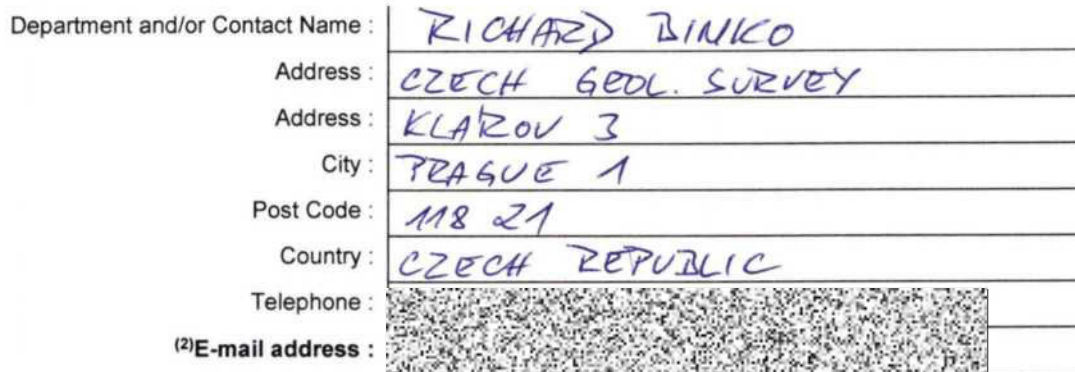 Department and/or Contact Name : RICHARD BINKO
Address : CZECH GEOL. SURVEY
Address : KLÁROV 3
City : PRAGUE 1
Post Code : 118 21
Country : CZECH REPUBLIC
Telephone :
(2)E-mail address :